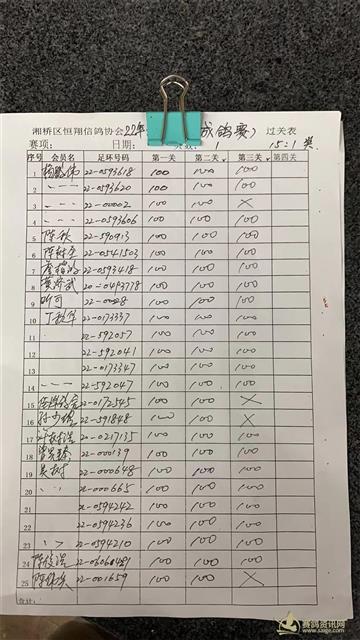 湘桥区恒翔信鸽协会22年 成鸽赛) 过关表
赛项: 日期: 1 15:1 奖
序号 会员名 足环号码 第一关 第二关 第三关 第四关
1 22-0593618 100 100 100
2 〃 22-0593620 100 100 100
3 〃 22-00002 100 100 ×
4 〃 22-0593606 100 100 100
5 陈秋 22-590913 100 100 100
6 22-0541503 100 100 100
7 22-0593418 100 100 100
8 20-0493778 100 100 100
9 22-0028 100 100 100
10 22-0173337 100 100 100
11 22-592057 100 100 100
12 22-592041 100 100 100
13 22-0173347 100 100 100
14 〃 22-592047 100 100 100
15 22-0172545 100 100 ×
16 22-591848 100 100 ×
17 20-0217135 100 100 100
18 22-000139 100 100 100
19 吴树 22-000648 100 100 100
20 〃 22-000665 100 100 100
21 22-0594242 100 100 100
22 22-0594236 100 100 100
23 〃 22-0594210 100 100 100
24 100 100 100
25 22-001659 100 100 ×
合计:
赛鸽资讯网
www.saige.com